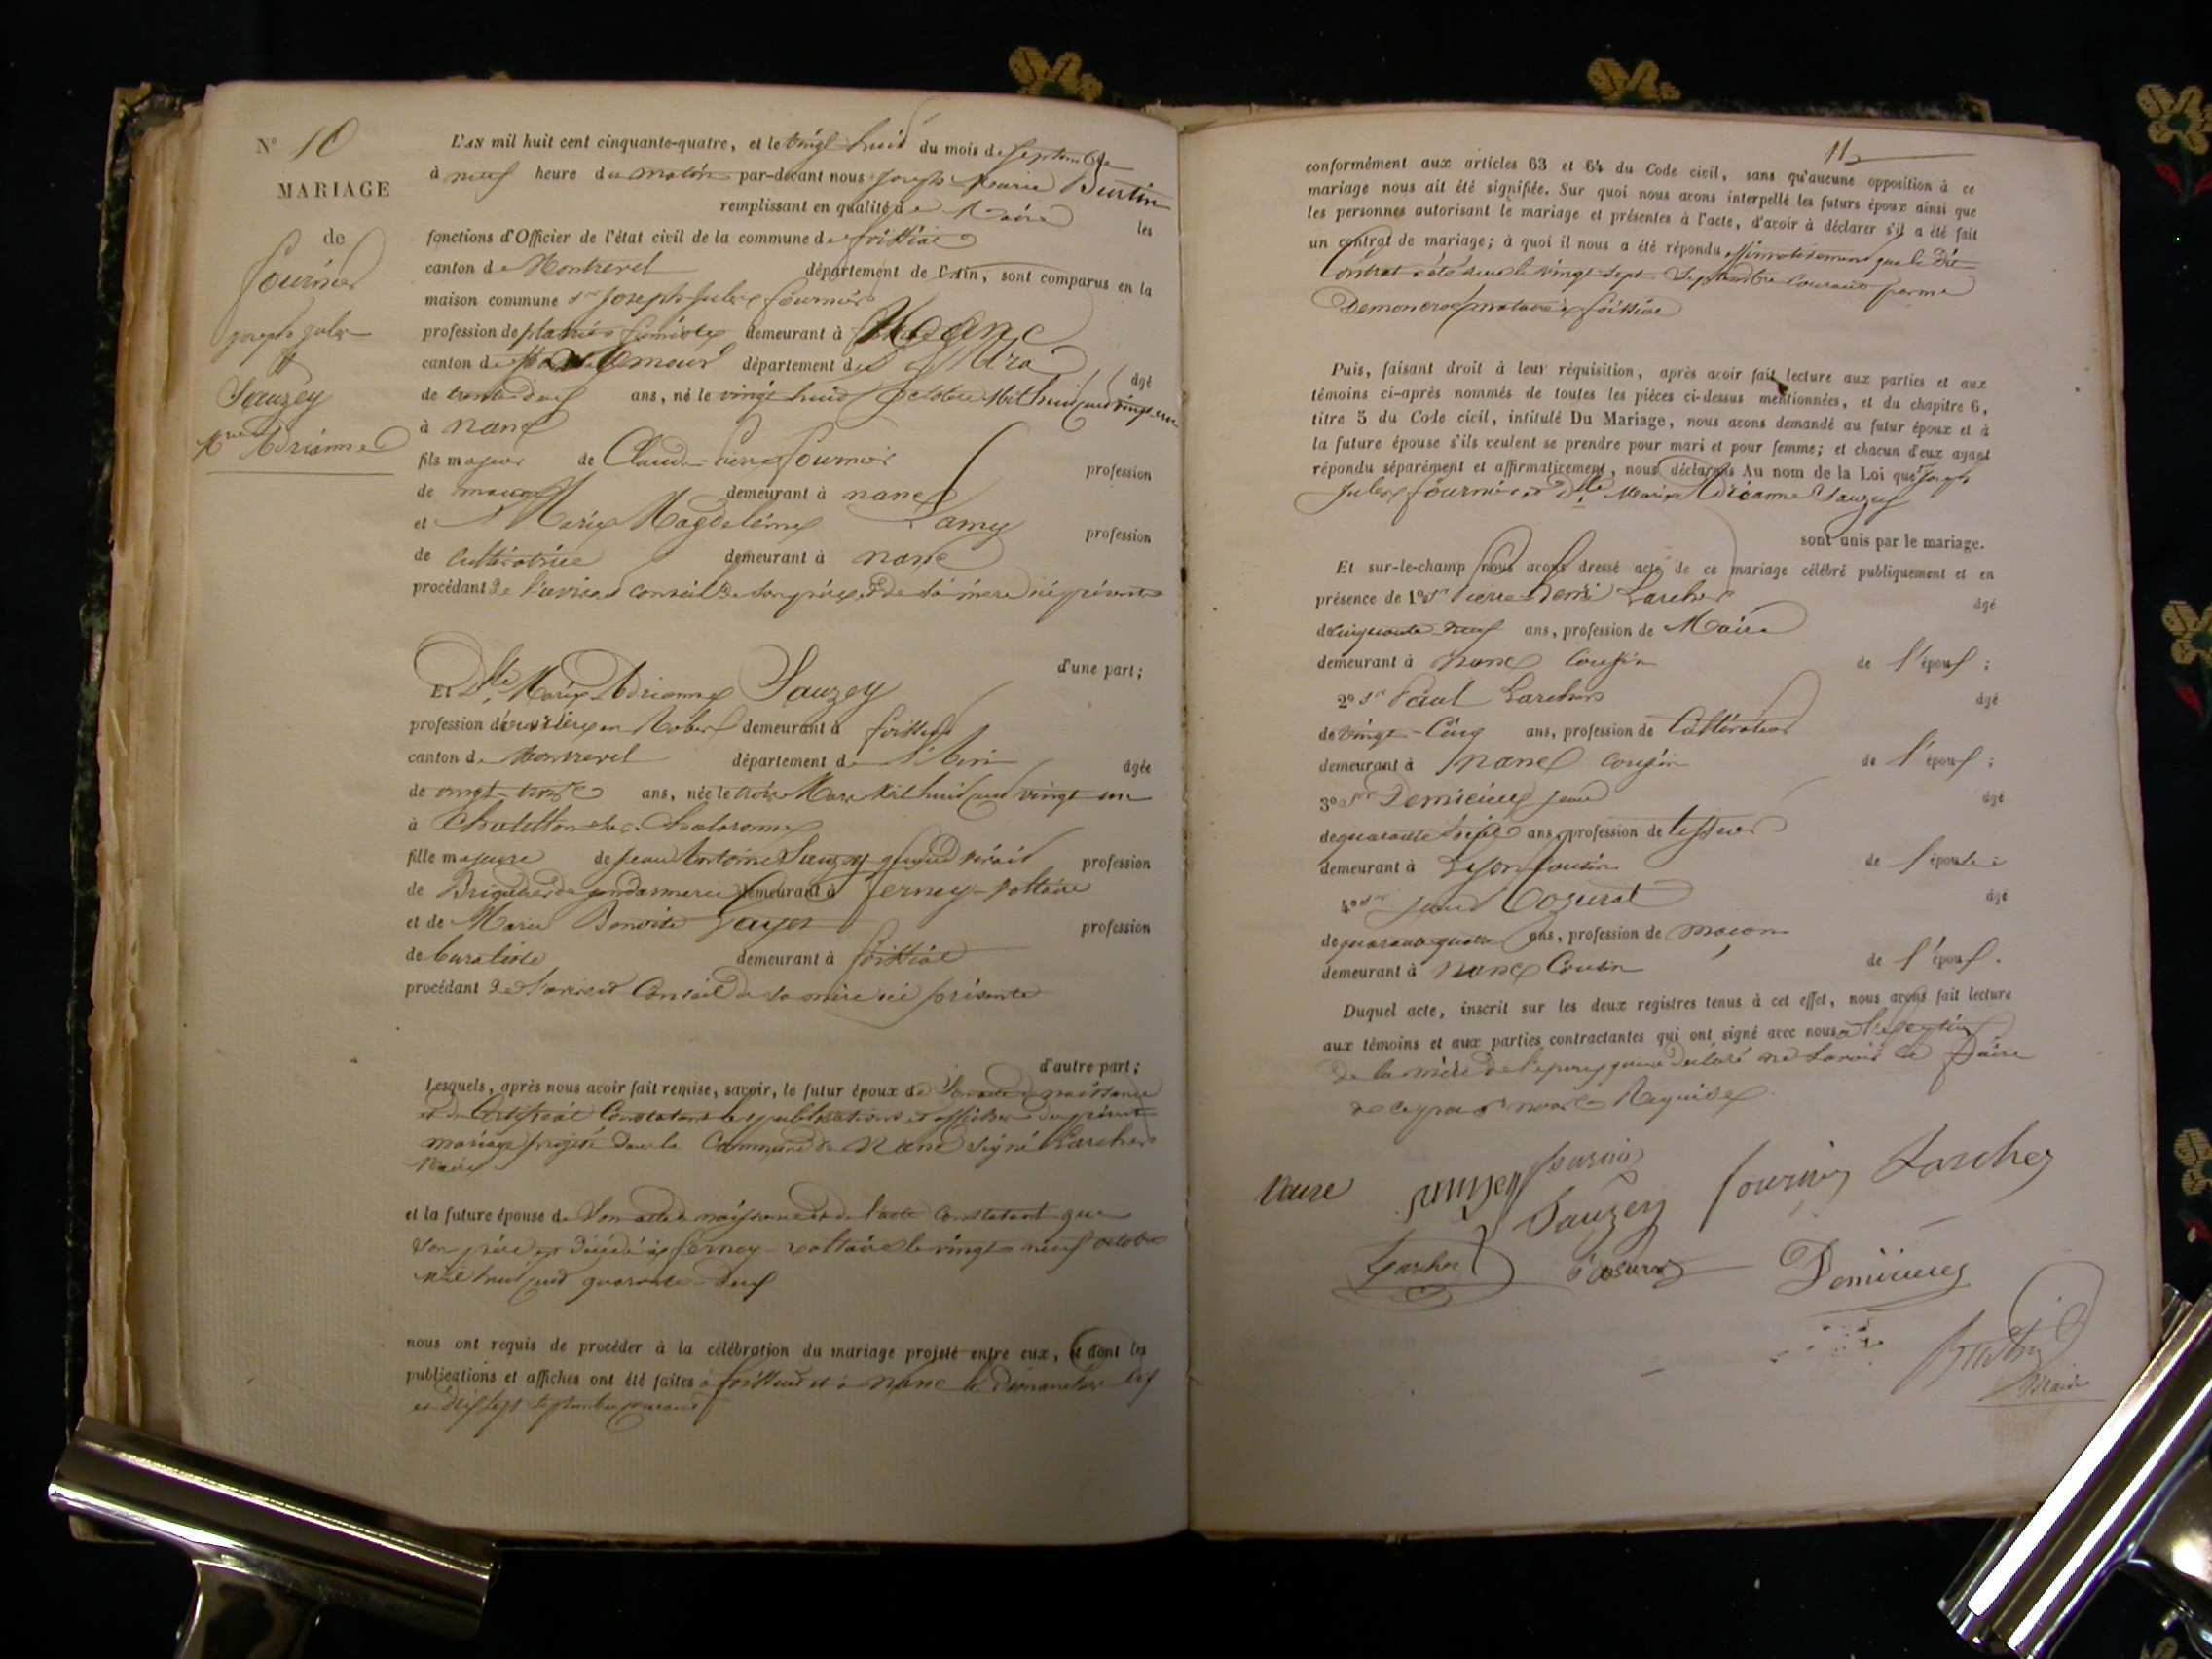 N° 10
MARIAGE
de
fournier
joseph jules
et
Sauzey
Mie Adrianne
L'AN mil huit cent cinquante-quatre, et le vingt huit du mois de septembre
à neuf heure du matin par-devant nous joseph Marie Burtin
remplissant en qualité de Maire les
fonctions d'Officier de l'état civil de la commune de foissiat
canton de Montrevel département de l'Ain, sont comparus en la
maison commune sr Joseph Jules fournier
profession de demeurant à Nanc
canton de St Amour département du Jura âgé
de trente deux ans, né le vingt huit octobre Mil huit cent vingt un
à nanc
fils majeur de Claude pierre fournier profession
de maçon demeurant à nanc
et Marie Magdeleine Lamy profession
de cultivatrice demeurant à nanc
procédant de l'avis et conseil de son père et de sa mère ici présents
d'une part;
Et Dlle Marie Adrianne Sauzey
profession d'ouvrière en Robes demeurant à foissiat
canton de Montrevel département de l'Ain âgée
de vingt-trois ans, née le trois Mars Mil huit cent vingt un
à Chatillon-sur-Chalaronne
fille majeure de Jean Antoine Sauzey quand vivait profession
de Brigadier de gendarmerie demeurant à ferney-voltaire
et de Marie Benoite Gayet profession
de buraliste demeurant à foissiat
procédant de l'avis et Conseil de sa mère ici présente
d'autre part;
Lesquels, après nous avoir fait remise, savoir, le futur époux de Son acte de naissance
et du Certificat Constatant les publications et affiches du présent
mariage projeté dans la Commune de Nanc signé Larcher
Maire
et la future épouse de Son acte de naissance et de l'acte Constatant que
son père est décédé à ferney-voltaire le vingt neuf octobre
mil huit cent quarante-deux
nous ont requis de procéder à la célébration du mariage projeté entre eux, et dont les
publications et affiches ont été faites à foissiat et à Nanc le Dimanches dix
et dix sept septembre courant
11
conformément aux articles 63 et 64 du Code civil, sans qu'aucune opposition à ce
mariage nous ait été signifiée. Sur quoi nous avons interpellé les futurs époux ainsi que
les personnes autorisant le mariage et présentes à l'acte, d'avoir à déclarer s'il a été fait
un contrat de mariage; à quoi il nous a été répondu affirmativement que le dit
Contrat a été reçu le vingt-sept Septembre Courant par me
notaire à foissiat
Puis, faisant droit à leur réquisition, après avoir fait lecture aux parties et aux
témoins ci-après nommés de toutes les pièces ci-dessus mentionnées, et du chapitre 6,
titre 5 du Code civil, intitulé Du Mariage, nous avons demandé au futur époux et à
la future épouse s'ils veulent se prendre pour mari et pour femme; et chacun d'eux ayant
répondu séparément et affirmativement, nous déclarons Au nom de la Loi que sr joseph
Jules fournier et Dlle Marie Adrianne Sauzey
sont unis par le mariage.
Et sur-le-champ nous avons dressé acte de ce mariage célébré publiquement et en
présence de 1° sr Pierre Henri Larcher âgé
de cinquante neuf ans, profession de Maire
demeurant à Nanc Cousin de l'époux;
2° sr Paul Larcher âgé
de vingt-Cinq ans, profession de Cultivateur
demeurant à Nanc cousin de l'époux;
3° sr jean âgé
de quarante ans, profession de tisseur
demeurant à Lyon Cousin de l'épouse;
4° sr jean Cosurat âgé
de quarante quatre ans, profession de maçon
demeurant à Nanc Cousin de l'époux.
Duquel acte, inscrit sur les deux registres tenus à cet effet, nous avons fait lecture
aux témoins et aux parties contractantes qui ont signé avec nous à l'exception
de la mère de l'époux qui a déclaré ne savoir le faire
de ce par nous Requise
Sauzey fournier
Sauzey fournier Larcher
Larcher
Burtin
Maire